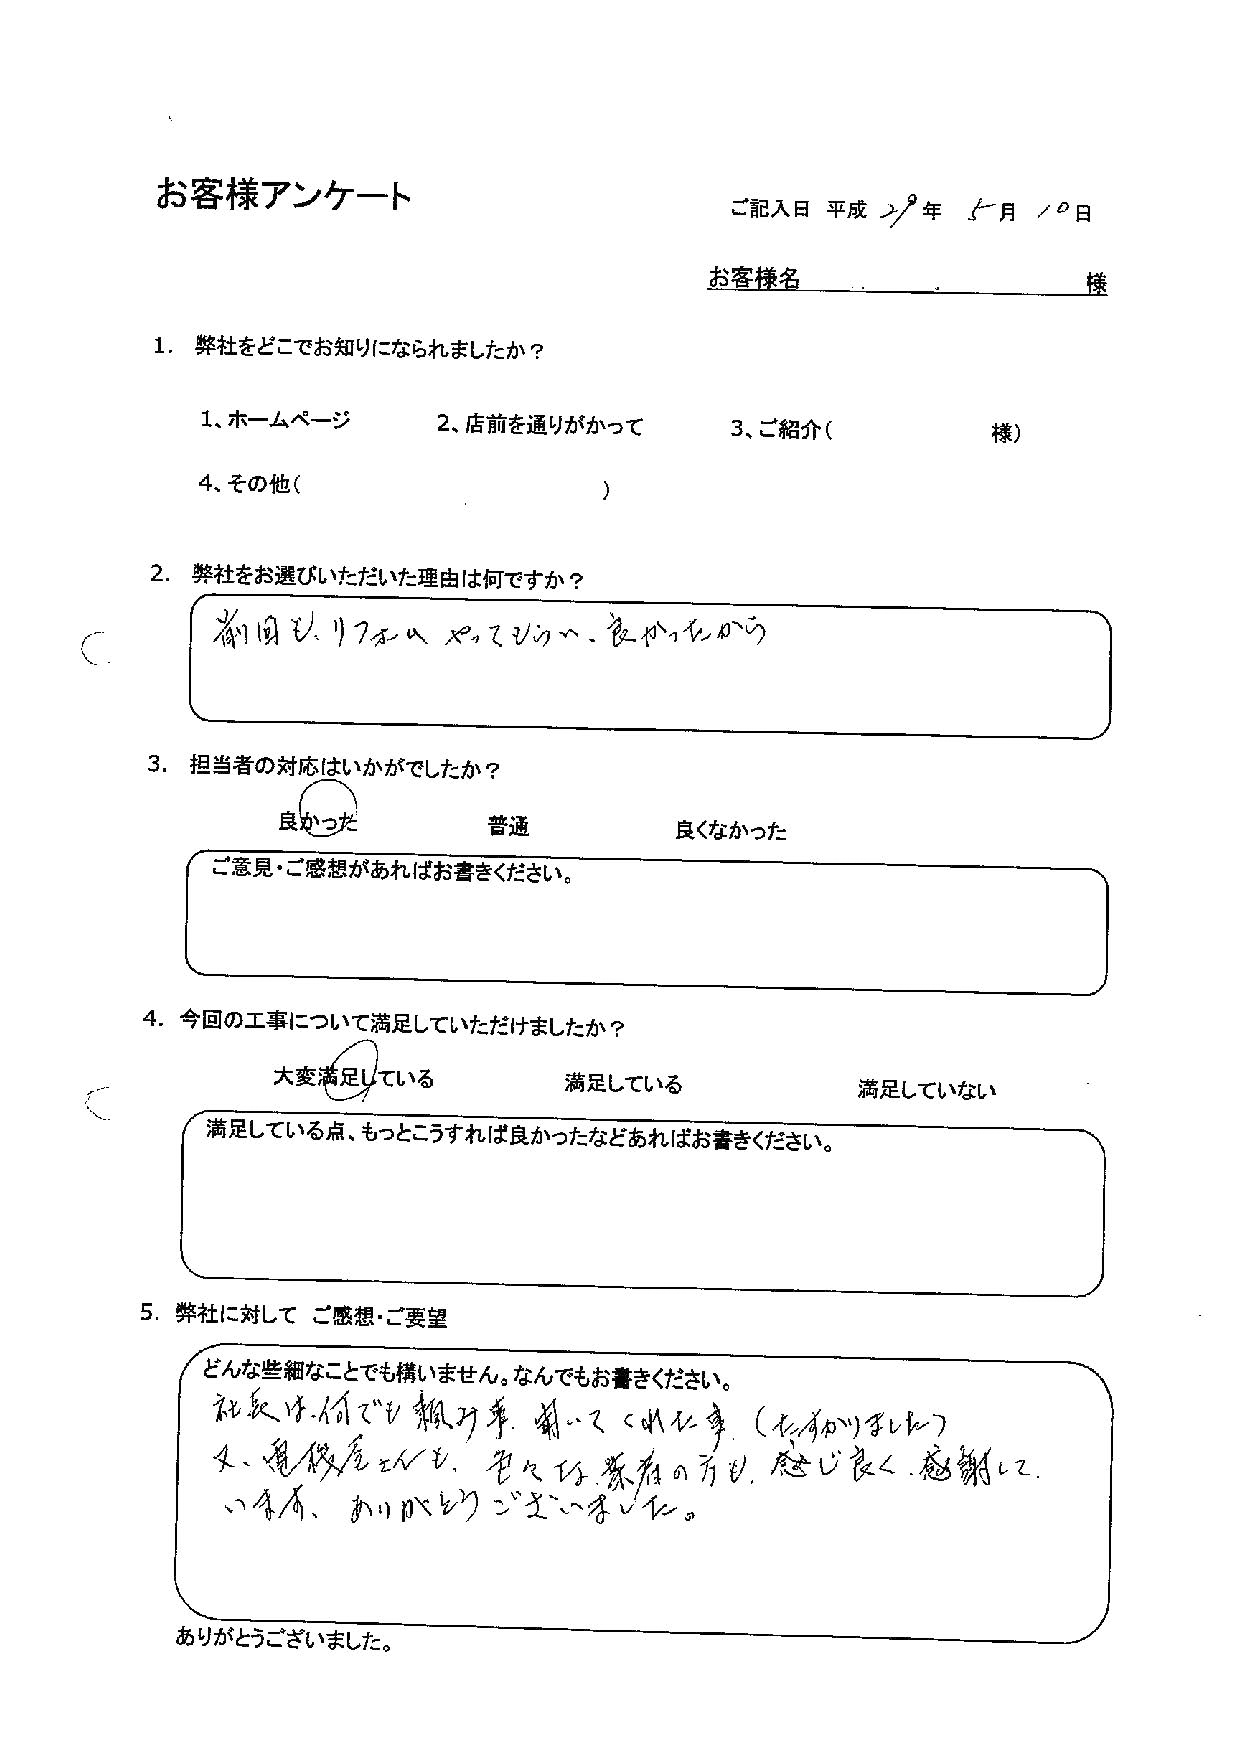 お客様アンケート
ご記入日 平成 29年 5月 10日
お客様名 様
1. 弊社をどこでお知りになられましたか？
1、ホームページ 2、店前を通りがかって 3、ご紹介( 様)
4、その他( )
2. 弊社をお選びいただいた理由は何ですか？
前回も、リフォーム やってもらい、良かったから
3. 担当者の対応はいかがでしたか？
良かった 普通 良くなかった
ご意見・ご感想があればお書きください。
4. 今回の工事について満足していただけましたか？
大変満足している 満足している 満足していない
満足している点、もっとこうすれば良かったなどあればお書きください。
5. 弊社に対して ご感想・ご要望
どんな些細なことでも構いません。なんでもお書きください。
社長は、何でも頼み事、聞いてくれた事、(たすかりました)
又、電機屋さんも、色々な業者の方も、感じ良く、感謝して
います、ありがとうございました。
ありがとうございました。